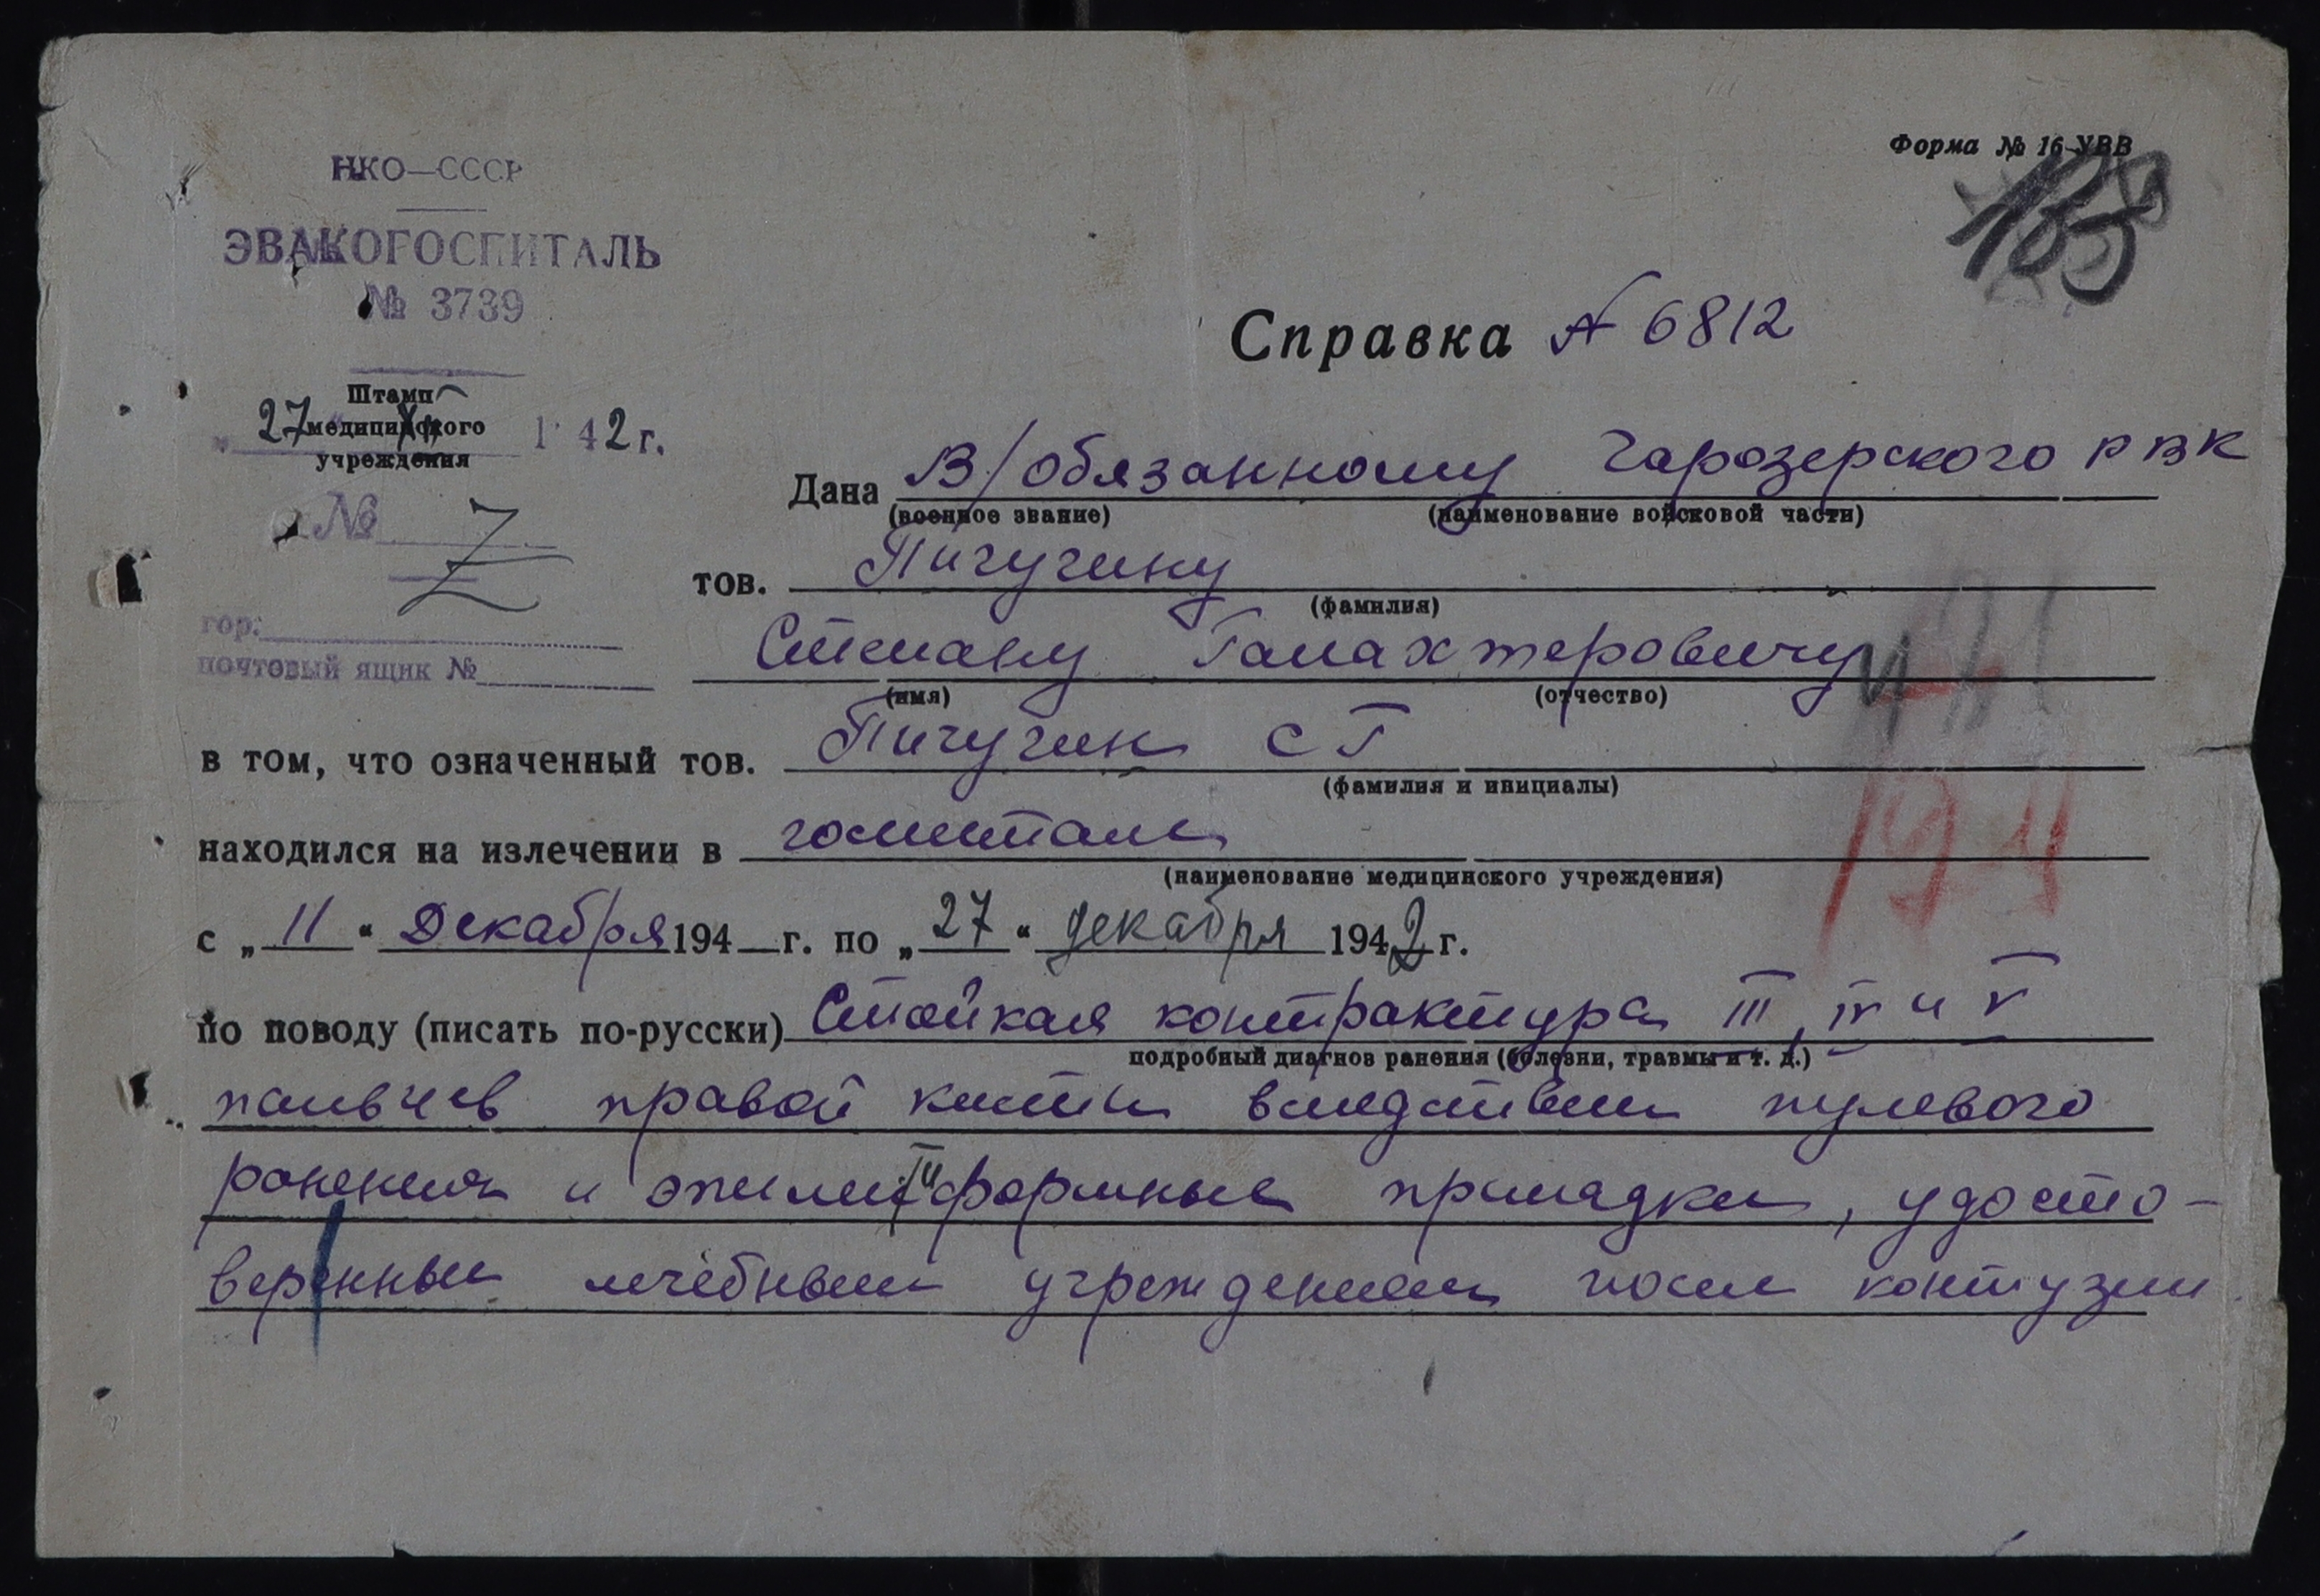 Форма № 16-УВВ
НКО—СССР
ЭВАКОГОСПИТАЛЬ
№ 3739
Справка № 6812
Штамп
медицинского
учреждения
27 XII 1942 г.
№
гор.
почтовый ящик №
Дана В/обязанному Чарозерского РВК
(военное звание) (наименование войсковой части)
тов. Пичугину
(фамилия)
Степану Галахтеровичу
(имя) (отчество)
в том, что означенный тов. Пичугин С Г
(фамилия и инициалы)
находился на излечении в госпитале
(наименование медицинского учреждения)
с „11“ Декабря 194 г. по „27“ декабря 1942 г.
по поводу (писать по-русски) Стойкая контрактура III, IV и V
подробный диагноз ранения (болезни, травмы и т. д.)
пальцев правой кисти вследствии пулевого
ранения и эпилептиформные припадки, удосто-
веренные лечебным учреждением после контузии.